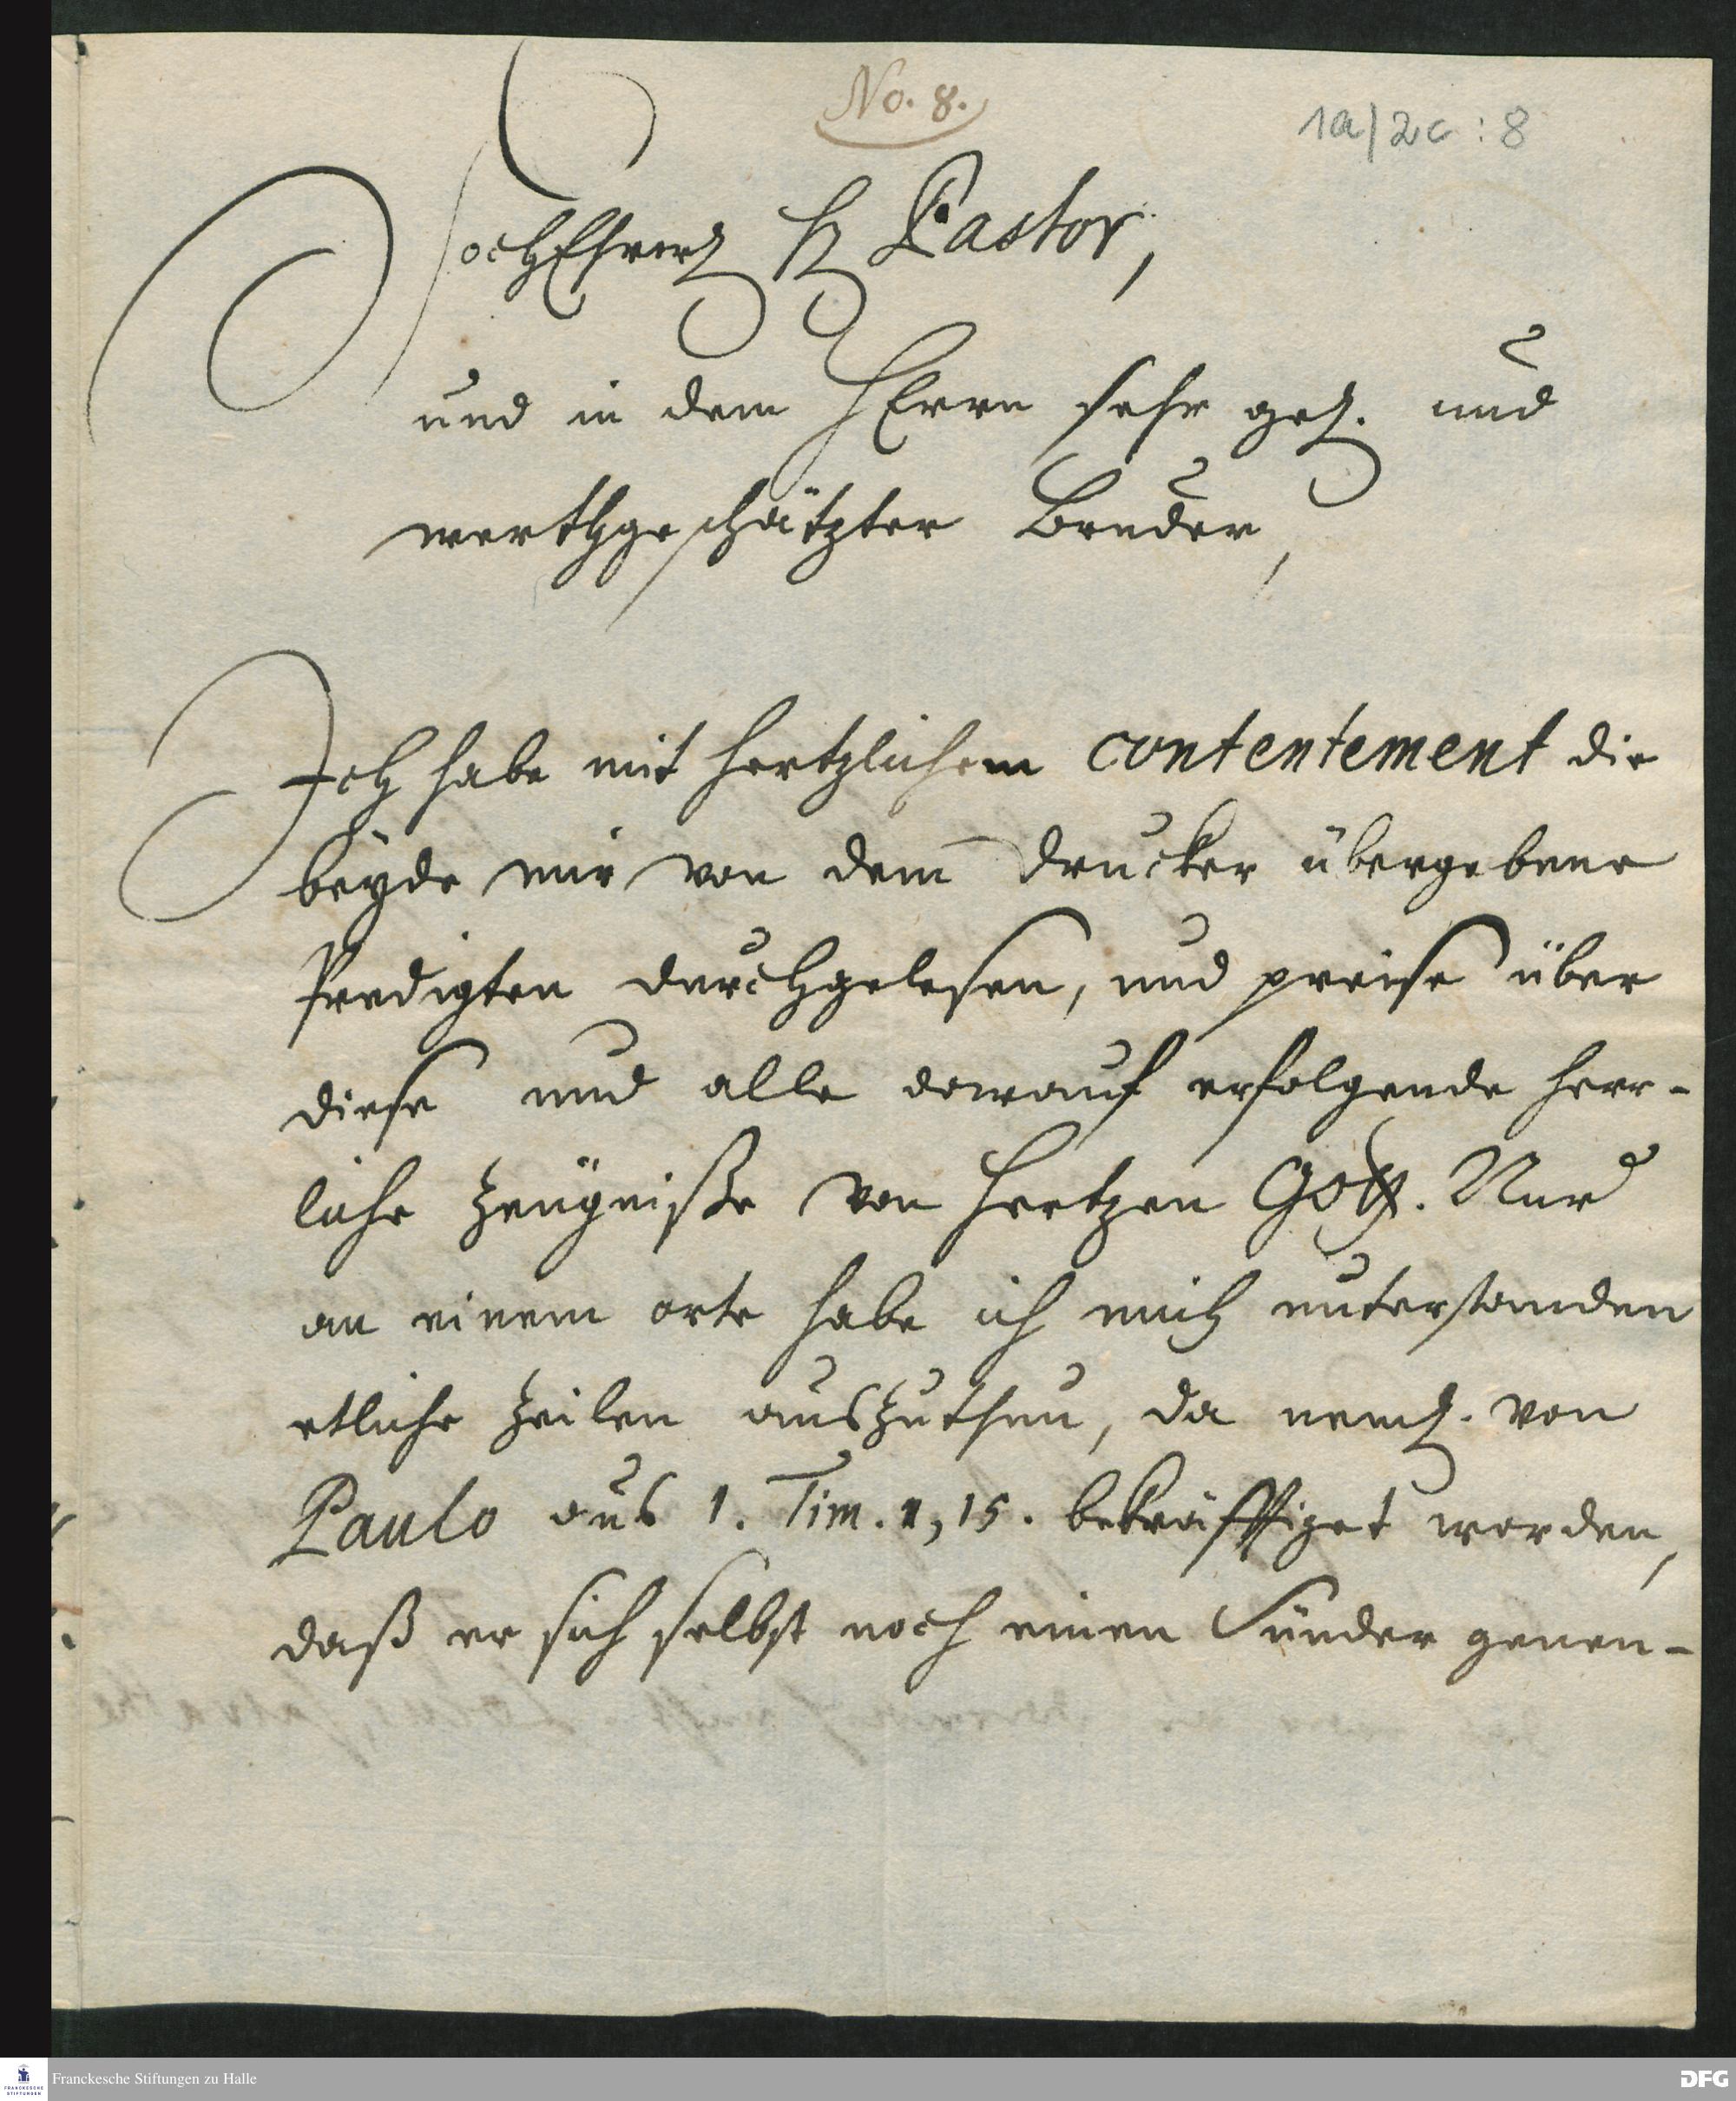 No. 8.
1a/2c : 8
HochEhrw. H. Pastor,
und in dem HErrn sehr gel. und
werthgeschätzter Bruder,
Ich habe mit hertzlichem contentement die
beyde mir von dem Drucker übergebene
Predigten durchgelesen, und preise über
diese und alle darauf erfolgende herr-
liche Zeugniße von Hertzen Gott. Nur
an einem orte habe ich mich unterstanden
etliche Zeilen auszuthun, da neml. von
Paulo aus 1. Tim. 1, 15. bekräfftiget worden,
daß er sich selbst noch einen Sünder genen-
Franckesche Stiftungen zu Halle
FRANCKESCHE
STIFTUNGEN
DFG